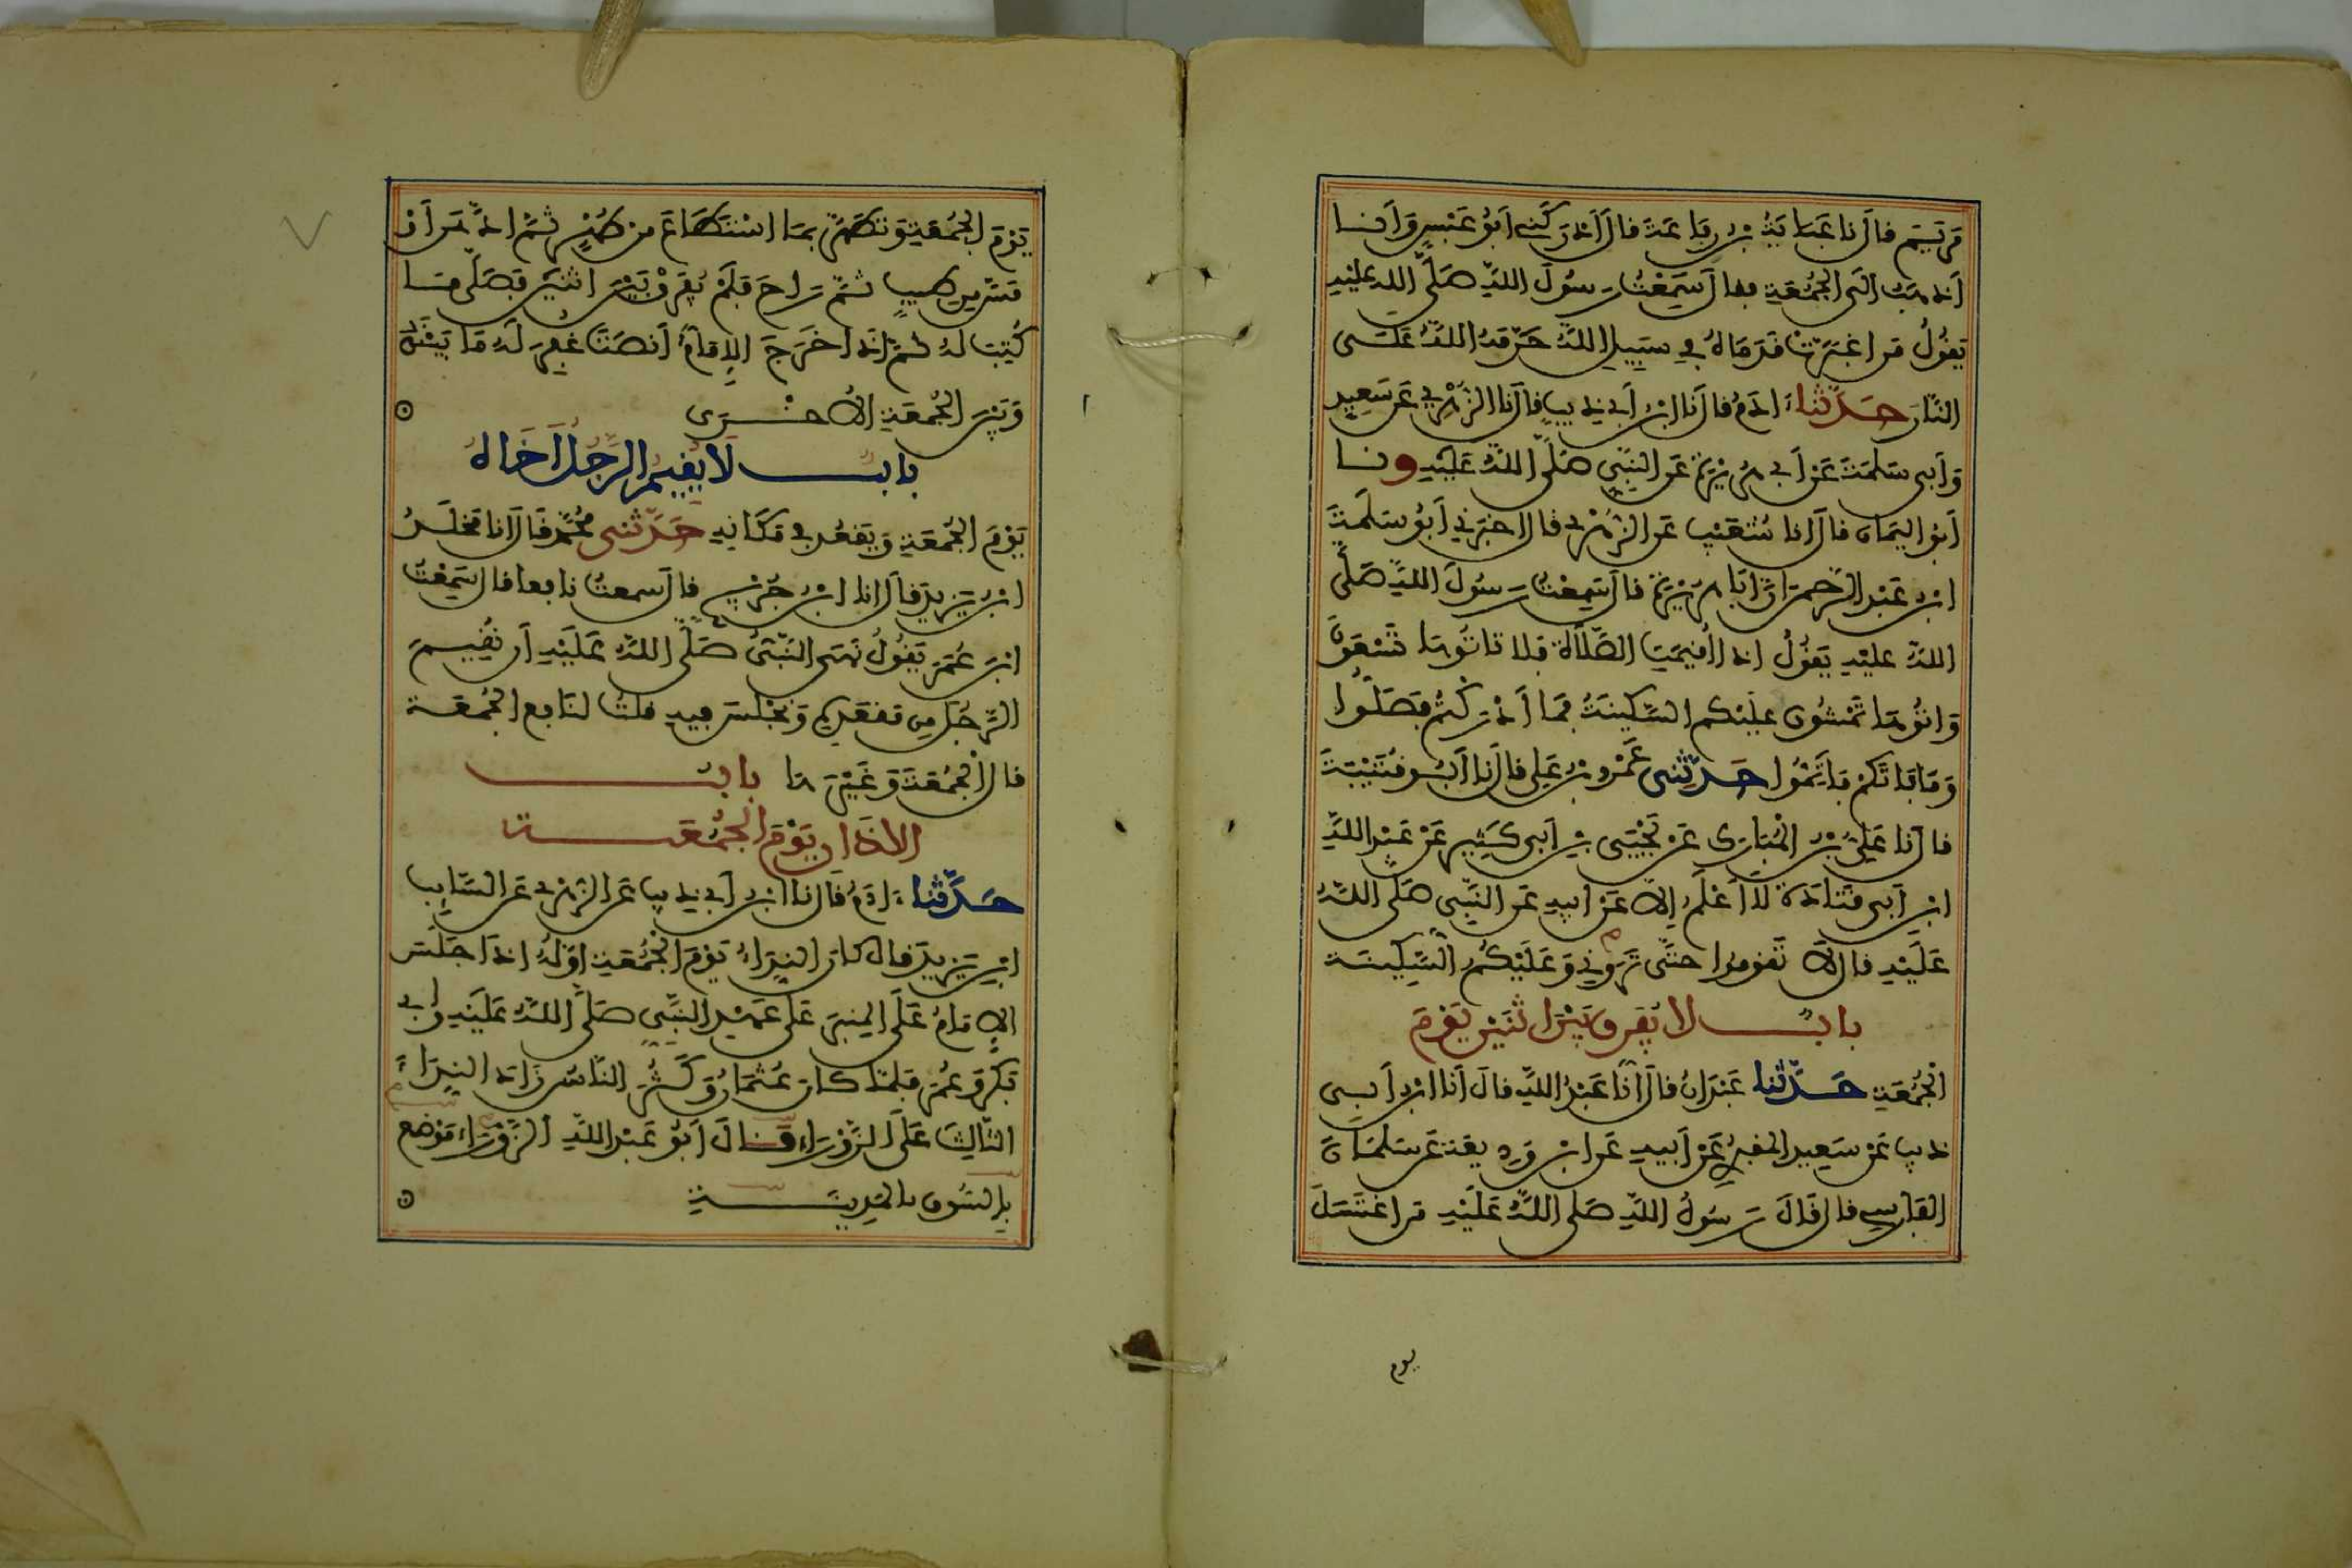 مريم قال نا عباية بن رفاعة قال أدركني أبو عبس وأنا
أذهب الى الجمعة فقال سمعت رسول الله صلى الله عليه
يقول من اغبرت قدماه في سبيل الله حرمه الله على
النار حدثنا ءادم قال نا ابن أبي ذيب قال نا الزهري عن سعيد
وأبي سلمة عن أبي هريرة عن النبي صلى الله عليه ونا
أبو اليمان قال انا شعيب عن الزهري قال اخبرني أبو سلمة
ابن عبد الرحمن ان أبا هريرة قال سمعت رسول الله صلى
الله عليه يقول اذا أقيمت الصلاة فلا تاتوها تسعون
واتوها تمشون عليكم السكينة فما أدركتم فصلوا
وما فاتكم فأتموا حدثني عمرو بن علي قال نا أبو قتيبة
قال نا علي بن المبارك عن يحيى بن أبي كثير عن عبد الله
ابن أبي قتادة لا أعلمه إلا عن أبيه عن النبي صلى الله
عليه قال لا تقوموا حتى تروني وعليكم السكينة
باب لا يفرق بين اثنين يوم
الجمعة حدثنا عبدان قال أنا عبد الله قال أنا ابن أبي
ذيب عن سعيد المقبري عن أبيه عن ابن وديعة عن سلمان
الفارسي قال قال رسول الله صلى الله عليه من اغتسل
يوم
يوم الجمعة وتطهر بما استطاع من طهر ثم ادهن أو
مس من طيب ثم راح فلم يفرق بين اثنين فصلى ما
كتب له ثم إذا خرج الإمام أنصت غفر له ما بينه
وبين الجمعة الأخرى
باب لا يقيم الرجل أخاه
يوم الجمعة ويقعد في مكانه حدثني محمد قال انا مخلد
ابن يزيد قال انا ابن جريج قال سمعت نافعا قال سمعت
ابن عمر يقول نهى النبي صلى الله عليه أن يقيم
الرجل من مقعده ويجلس فيه قلت لنافع الجمعة
قال الجمعة وغيرها باب
الاذان يوم الجمعة
حدثنا ءادم قال نا ابن أبي ذيب عن الزهري عن السايب
ابن يزيد قال كان النداء يوم الجمعة اوله اذا جلس
الإمام على المنبر على عهد النبي صلى الله عليه وأبي
بكر وعمر فلما كان عثمان وكثر الناس زاد النداء
الثالث على الزوراء قال أبو عبد الله الزوراء موضع
بالسوق بالمدينة